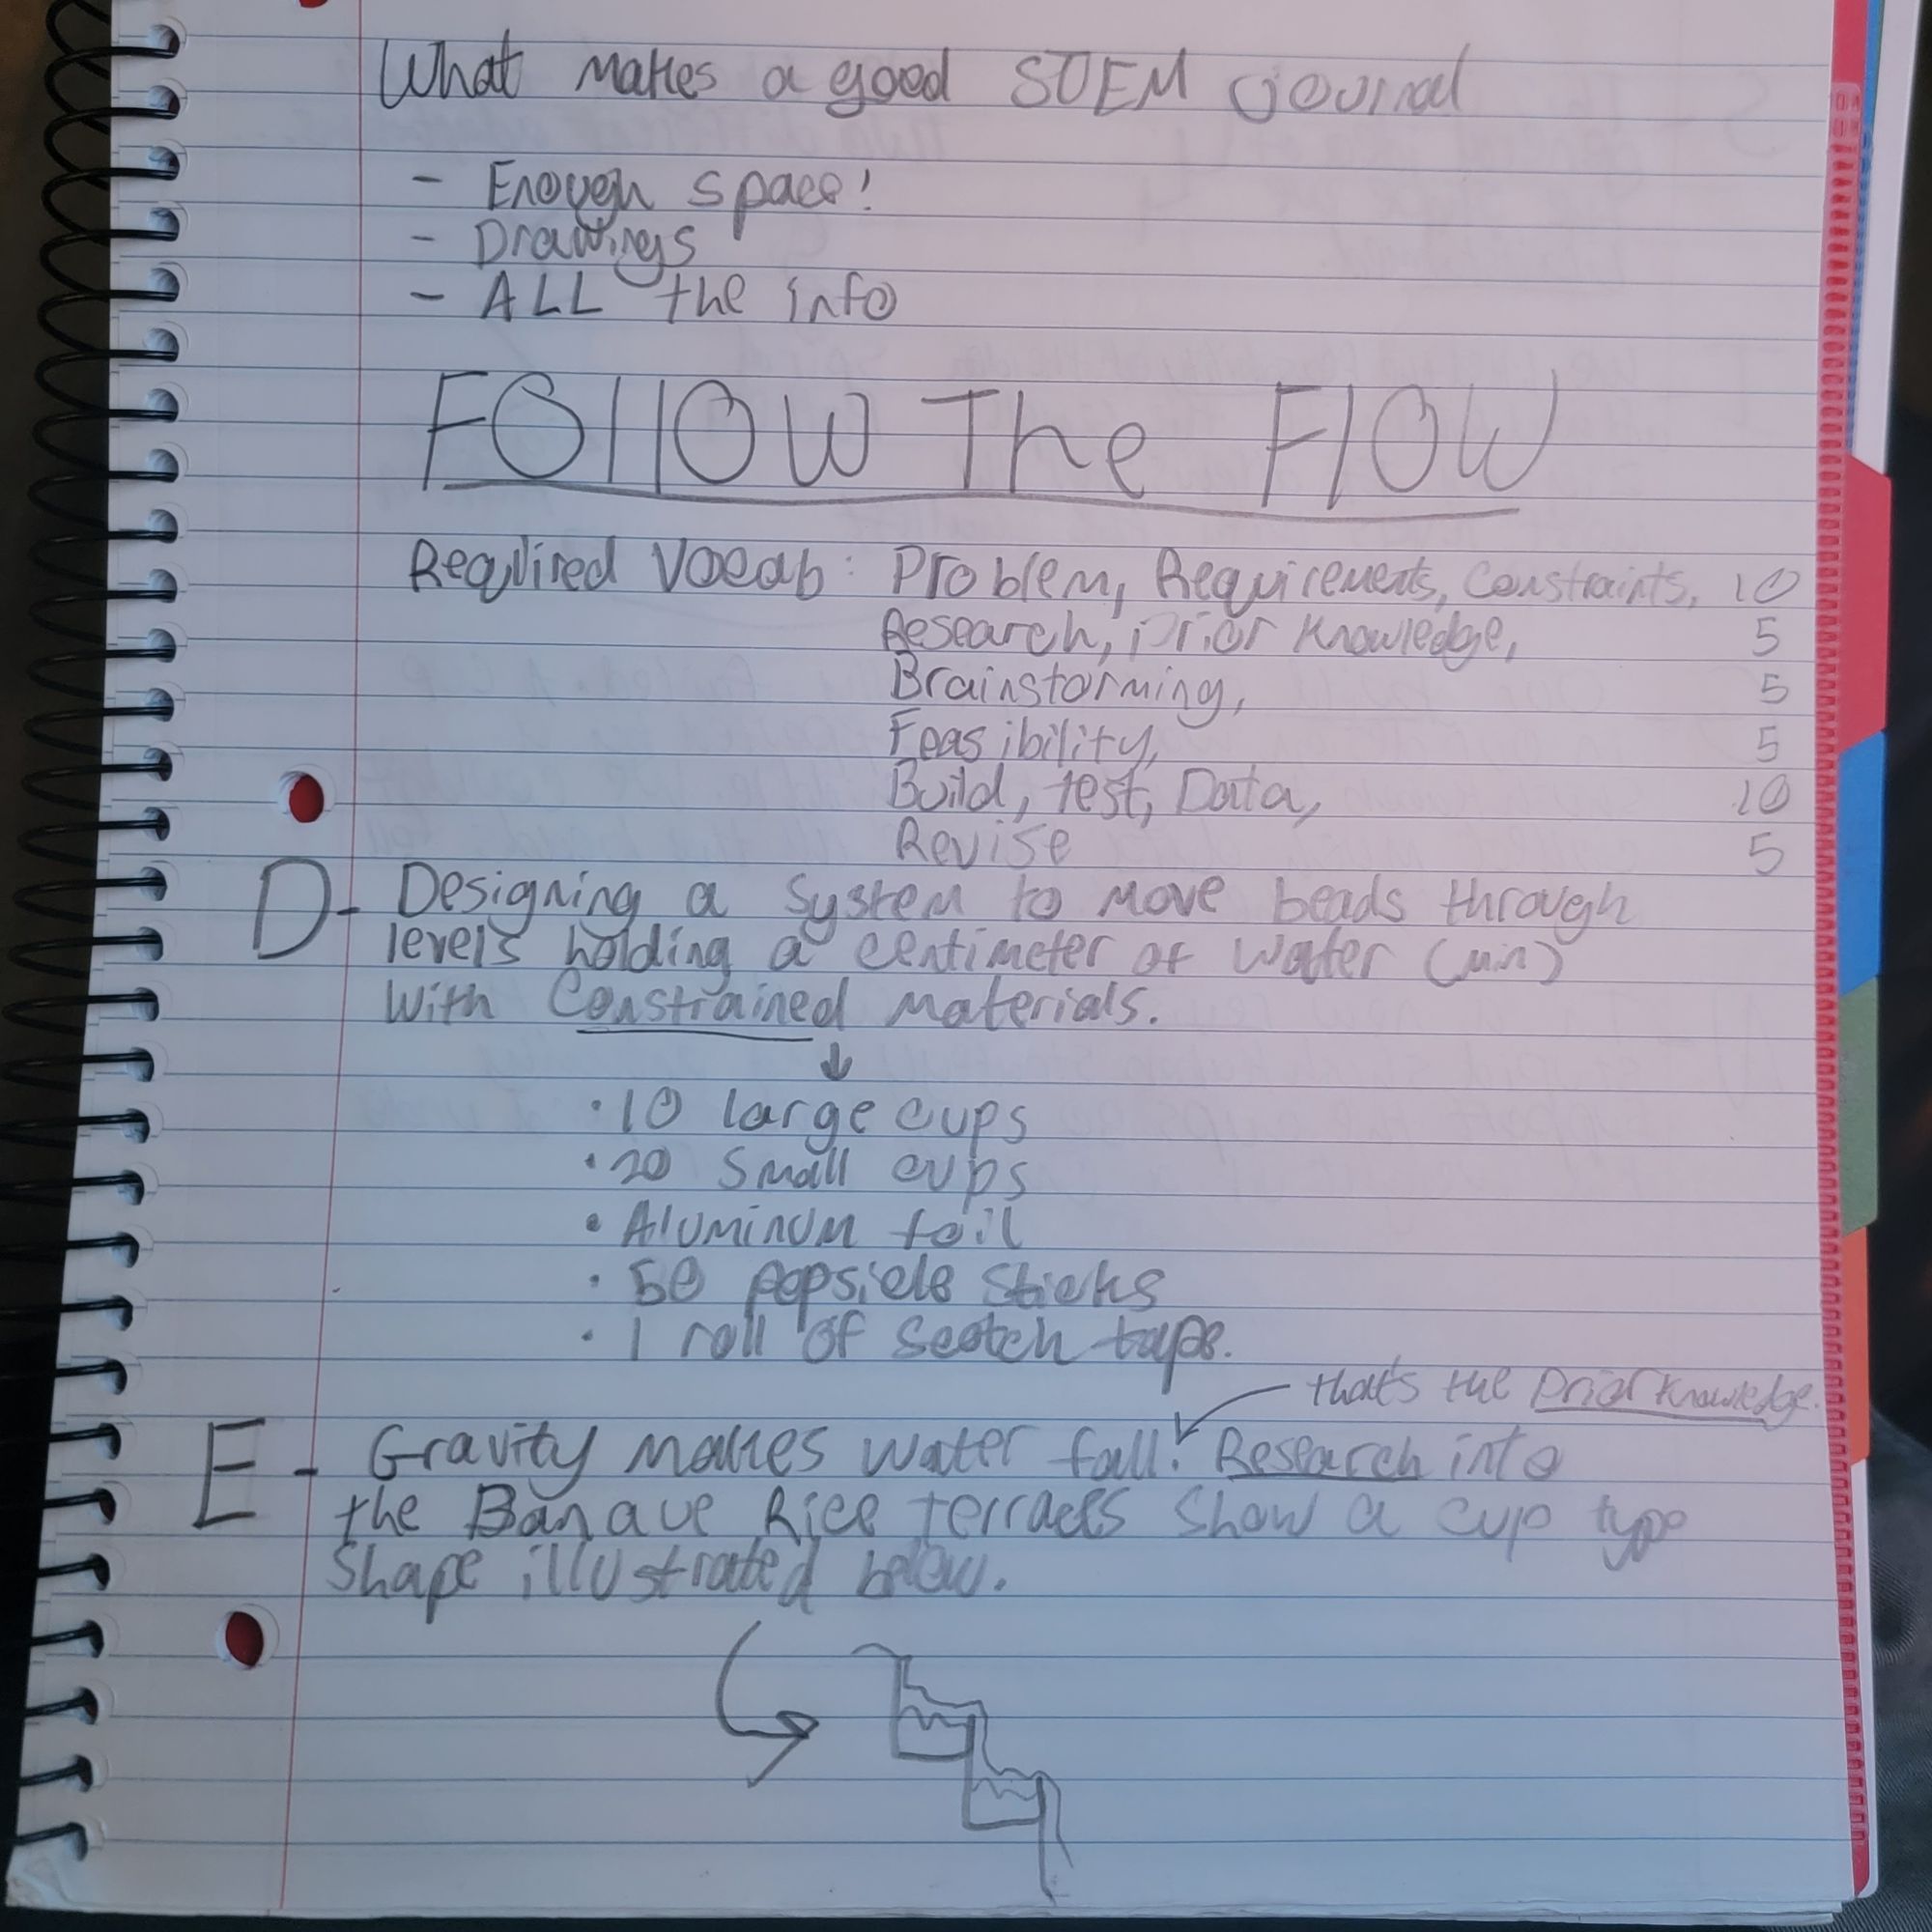 What makes a good STEM journal
- Enough space!
- Drawings
- ALL the info
FOllOW The FlOW
Required Vocab: Problem, Requirements, Constraints, 10
Research, prior knowledge, 5
Brainstorming, 5
Feasibility, 5
Build, test, Data, 10
Revise 5
D- Designing a system to move beads through
levels holding a centimeter of water (min)
with constrained materials.
↓
· 10 large cups
· 20 small cups
· Aluminum foil
· 50 popsicle sticks
· 1 roll of scotch tape.
that's the prior knowledge.
E- Gravity makes water fall. Research into
the Banaue Rice terraces show a cup type
shape illustrated below.